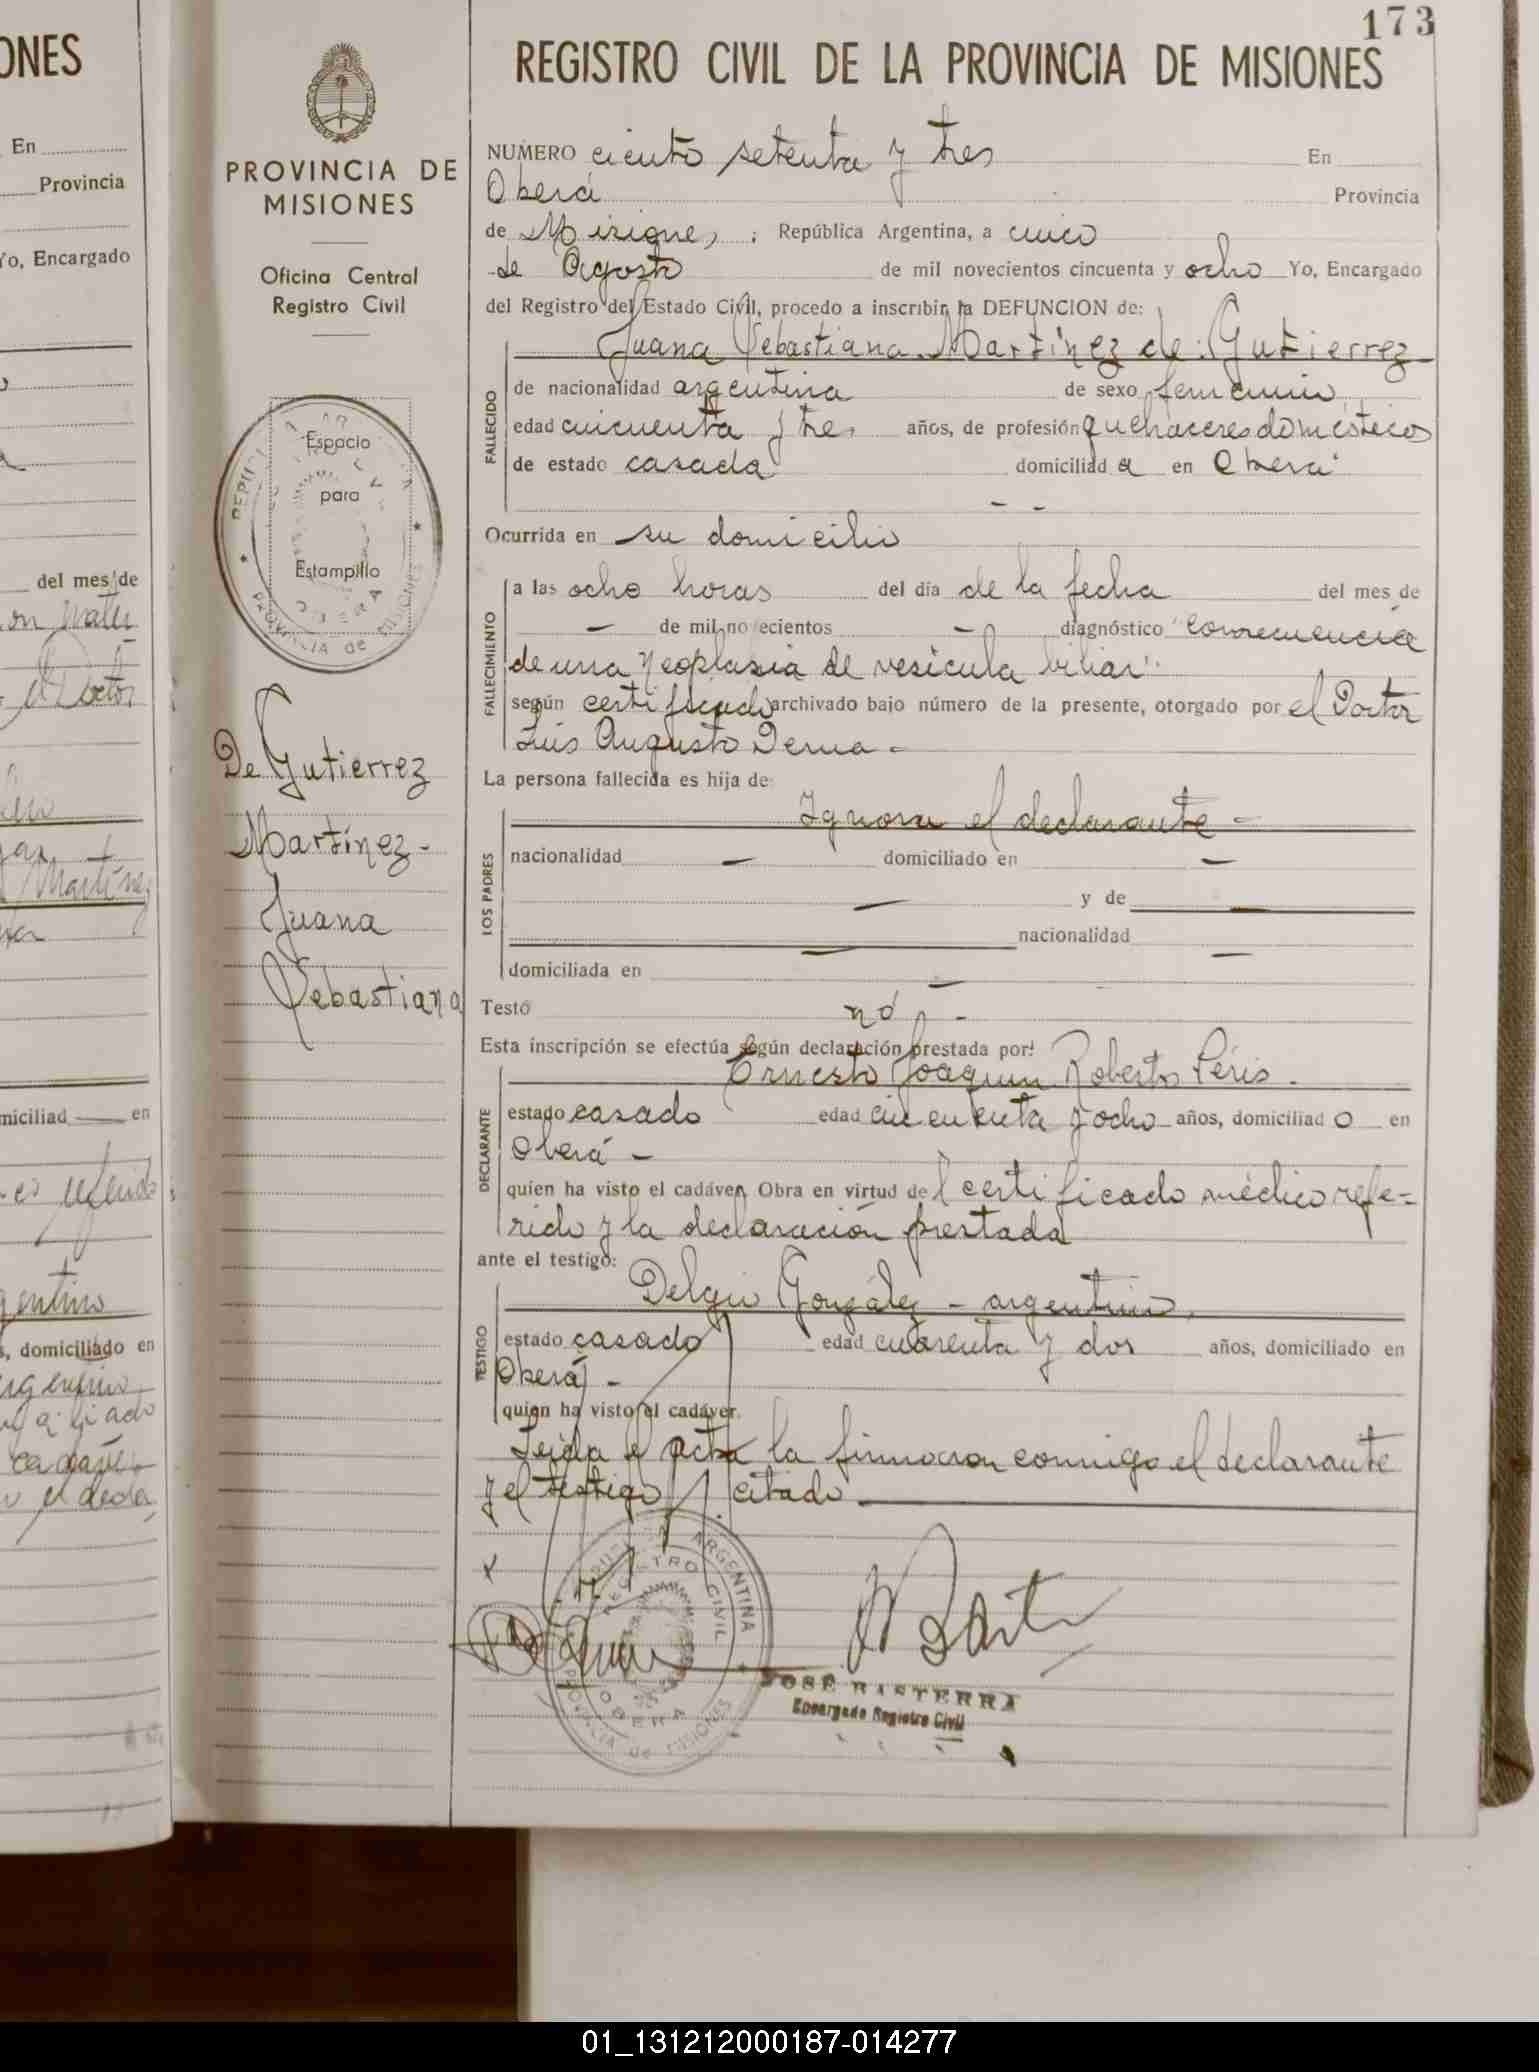 173
REGISTRO CIVIL DE LA PROVINCIA DE MISIONES
NUMERO ciento setenta y tres En
Oberá Provincia
de Misiones, República Argentina, a cinco
de Agosto de mil novecientos cincuenta y ocho Yo, Encargado
del Registro del Estado Civil, procedo a inscribir la DEFUNCION de:
Juana Sebastiana Martínez de Gutierrez
FALLECIDO
de nacionalidad argentina de sexo femenino
edad cincuenta y tres años, de profesión quehaceres domésticos
de estado casada domiciliada en Oberá
Ocurrida en su domicilio
FALLECIMIENTO
a las ocho horas del día de la fecha del mes de
— de mil novecientos — diagnóstico "consecuencia
de una neoplasia de vesícula biliar".
según certificado archivado bajo número de la presente, otorgado por el Doctor
Luis Augusto Derna -
La persona fallecida es hija de:
LOS PADRES
Ignora el declarante -
nacionalidad — domiciliado en —
— y de —
— nacionalidad —
domiciliada en —
Testó no -
Esta inscripción se efectúa según declaración prestada por:
DECLARANTE
Ernesto Joaquin Roberto Péris.
estado casado edad cincuenta y ocho años, domiciliado en
Oberá -
quien ha visto el cadáver. Obra en virtud del certificado médico refe=
rido y la declaración prestada
ante el testigo:
TESTIGO
Delgio González - argentino,
estado casado edad cuarenta y dos años, domiciliado en
Oberá -
quien ha visto el cadáver.
Leída el acta la firmaron conmigo el declarante
y el testigo citado.
JOSÉ BASTERRA
Encargado Registro Civil
REGISTRO CIVIL
OBERA
PROVINCIA de MISIONES
PROVINCIA DE
MISIONES
Oficina Central
Registro Civil
Espacio
para
Estampillo
PROVINCIA de MISIONES
OBERA
De Gutierrez
Martínez-
Juana
Sebastiana
ONES
En
Provincia
Yo, Encargado
del mes de
Doctor
Martínez
miciliad — en
s, domiciliado en
01_131212000187-014277